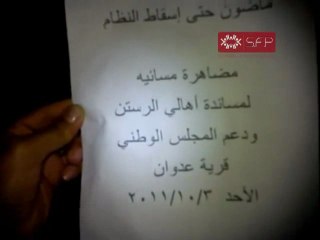 ماضون حتى إسقاط النظام
S.F.P
مضاهرة مسائيه
لمساندة أهالي الرستن
ودعم المجلس الوطني
قرية عدوان
الأحد ٢٠١١/١٠/٣